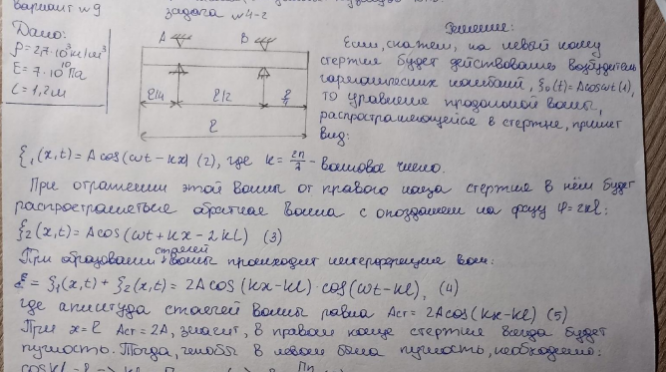 вариант №9
задача №4-2
Дано:
ρ=2,7·10³кг/м³
E=7·10¹⁰Па
l=1,2м
A
B
l/4
l/2
l
Решение:
Если, скажем, на левый конец
стержня будет действовать возбудитель
гармонических колебаний, ξ₀(t)=Acosωt (1),
то уравнение продольной волны,
распространяющейся в стержне, примет
вид:
ξ₁(x,t)=Acos(ωt-kx) (2), где k=2π/λ - волновое число.
При отражении этой волны от правого конца стержня в нём будет
распространяться обратная волна с опозданием на фазу φ=2kl:
ξ₂(x,t)=Acos(ωt+kx-2kl) (3)
При образовании стоячей волны происходит интерференция волн:
ξ=ξ₁(x,t)+ξ₂(x,t)=2Acos(kx-kl)·cos(ωt-kl), (4)
где амплитуда стоячей волны равна Aст=2Acos(kx-kl) (5)
При x=l Aст=2A, значит, в правом конце стержня всегда будет
пучность. Тогда, чтобы в левом была пучность, необходимо: